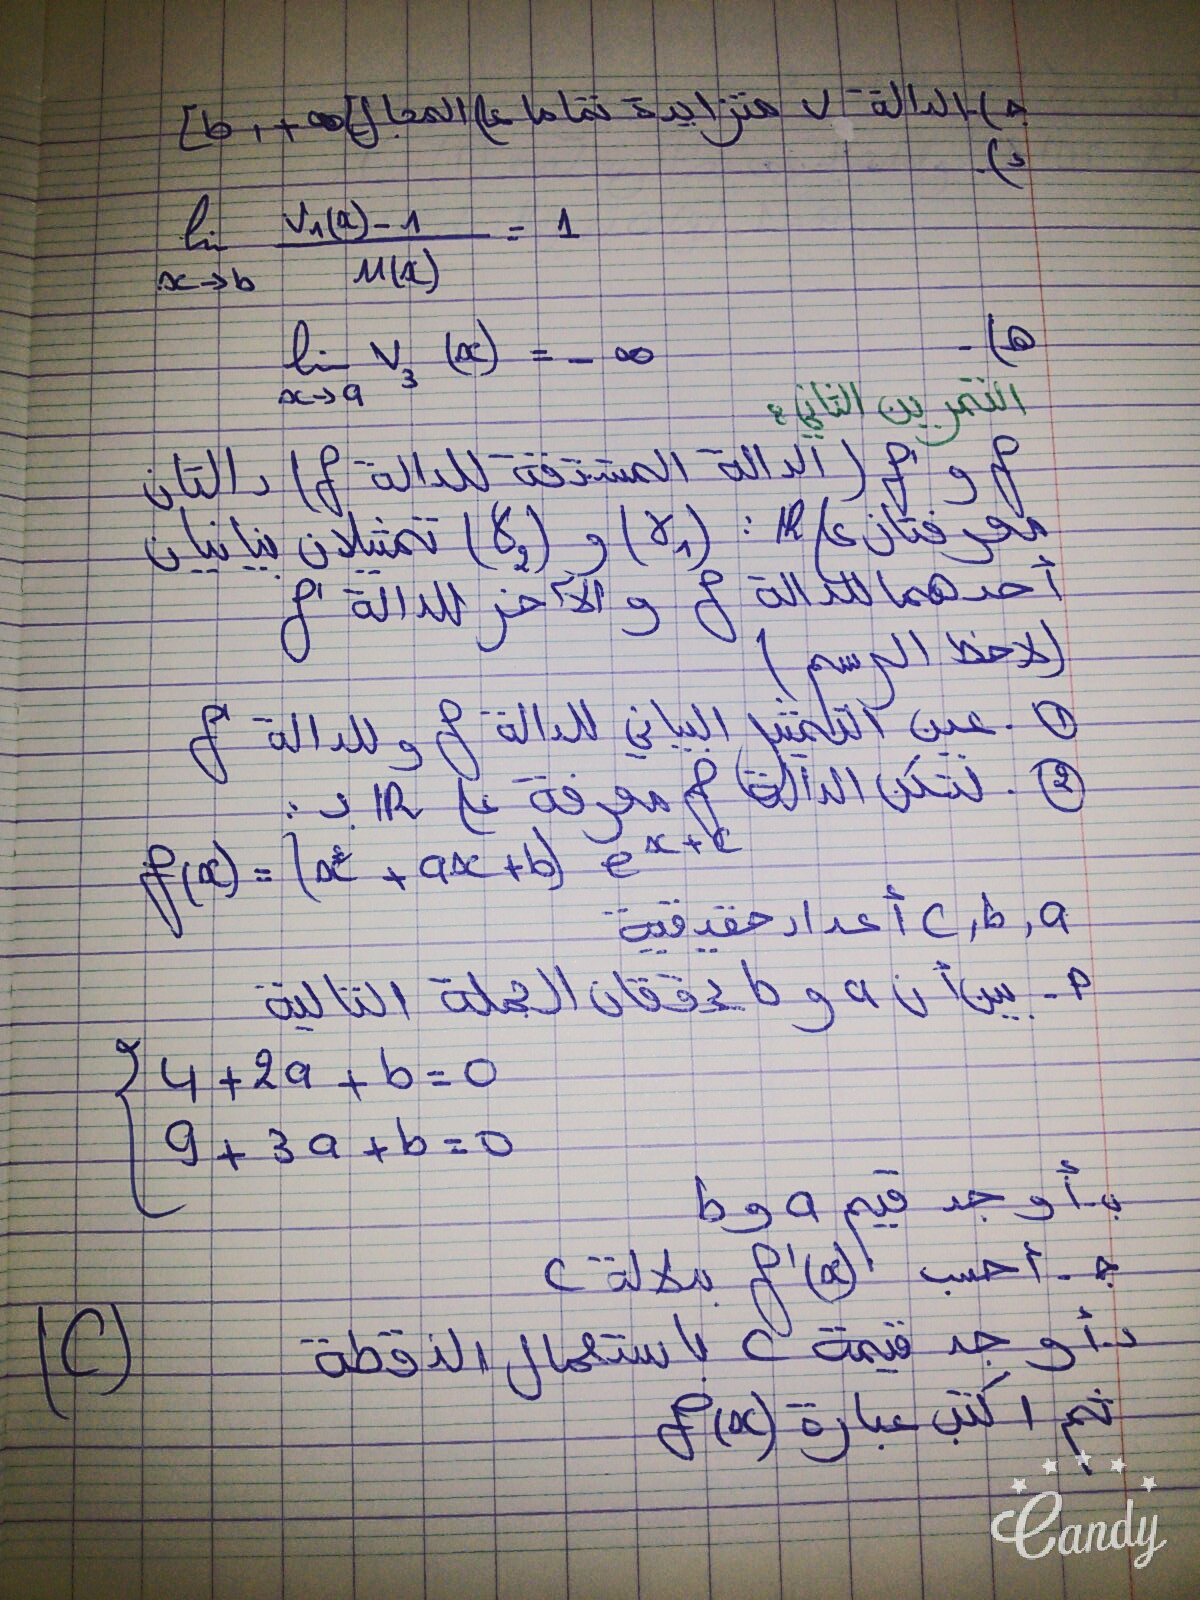 ج) الدالة V متزايدة تماما على المجال ]b, +∞[
د) -
lim x→b (V₁(x) - 1) / U(x) = 1
ه) - lim x→a V₃(x) = -∞
التمرين الثاني:
f و f' (الدالة المشتقة للدالة f) دالتان
معرفتان على ℝ: (γ₁) و (γ₂) تمثيلان بيانيان
أحدهما للدالة f و الآخر للدالة f'
(لاحظ الرسم)
① . عين التمثيل البياني للدالة f و للدالة f'
② . لتكن الدالة f معرفة على ℝ بـ :
f(x) = (x² + ax + b) e^(x+c)
a, b, c أعداد حقيقية
أ - بين أن a و b يحققان الجملة التالية
{ 4 + 2a + b = 0
9 + 3a + b = 0
ب - أوجد قيم a و b
ج - أحسب f'(x) بدلالة c
د - أوجد قيمة c باستعمال النقطة (C)
ثم اكتب عبارة f(x)
Candy